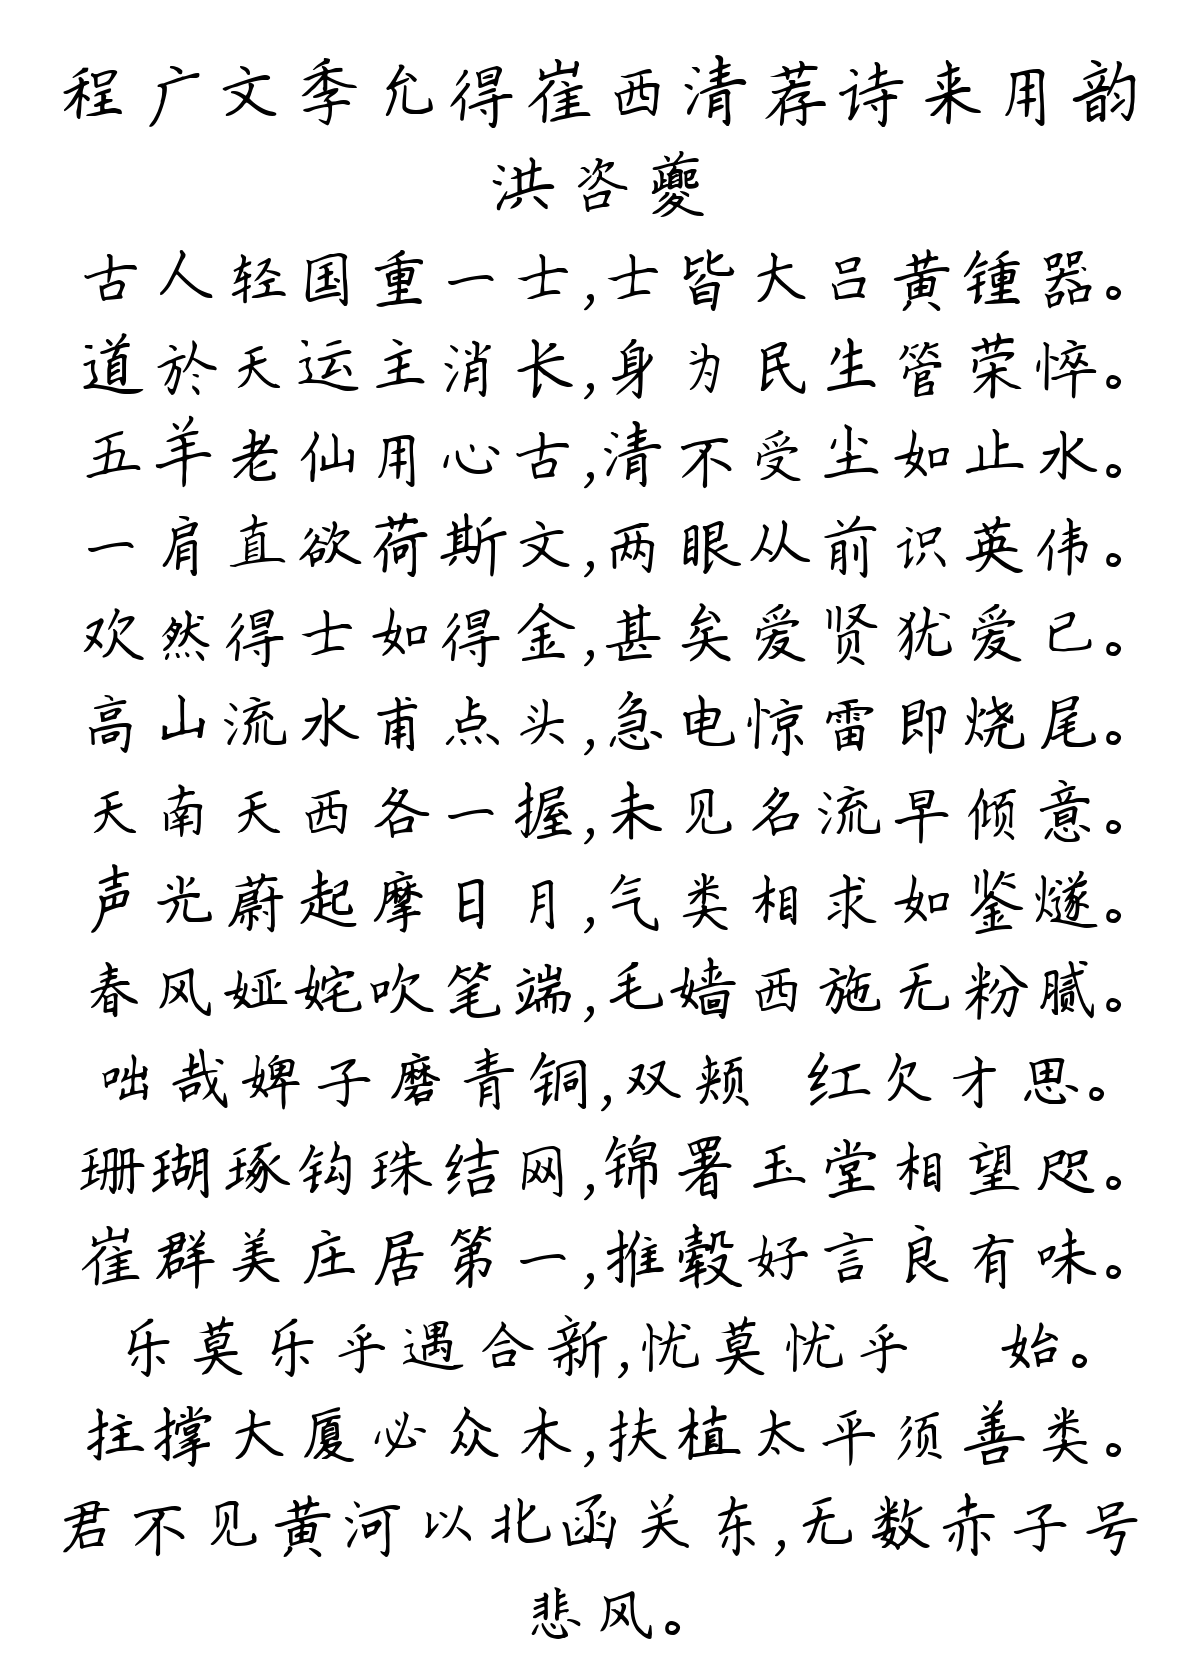 程广文季允得崔西清荐诗来用韵
洪咨夔
古人轻国重一士,士皆大吕黄锺器。
道於天运主消长,身为民生管荣悴。
五羊老仙用心古,清不受尘如止水。
一肩直欲荷斯文,两眼从前识英伟。
欢然得士如得金,甚矣爱贤犹爱已。
高山流水甫点头,急电惊雷即烧尾。
天南天西各一握,未见名流早倾意。
声光蔚起摩日月,气类相求如鉴燧。
春风娅姹吹笔端,毛嫱西施无粉腻。
咄哉婢子磨青铜,双颊 红欠才思。
珊瑚琢钩珠结网,锦署玉堂相望咫。
崔群美庄居第一,推毂好言良有味。
乐莫乐乎遇合新,忧莫忧乎 始。
拄撑大厦必众木,扶植太平须善类。
君不见黄河以北函关东,无数赤子号
悲风。